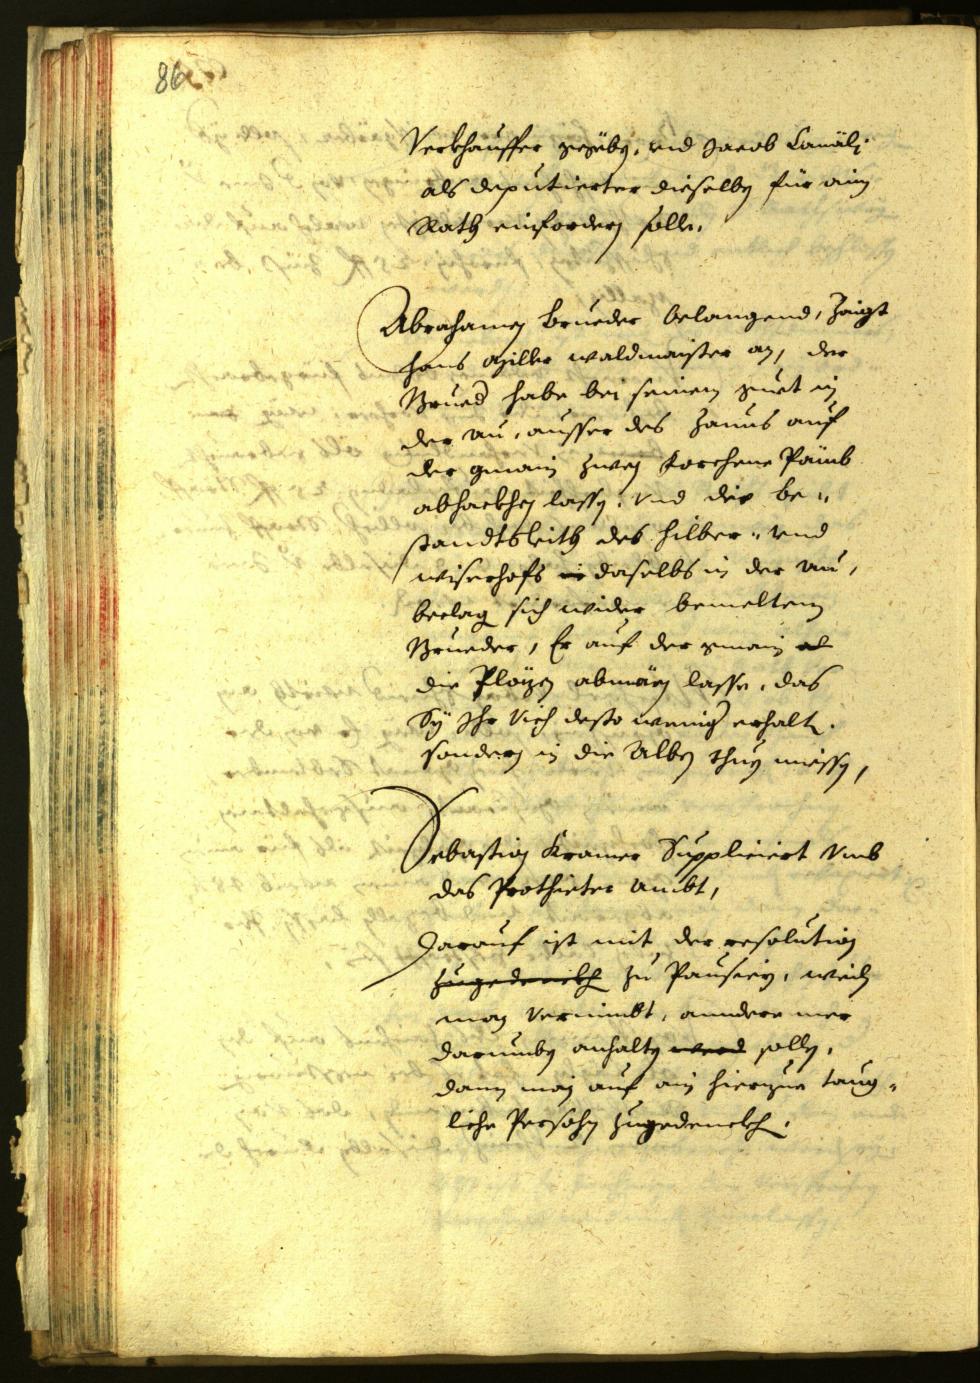 86
Verkhauffer gegeben, und Jacob
als deputierter dieselben für ain
Rath einfordern solle.
Abrahamen Brueder belangend, Zaigt
Hans Hiller waldmaister an, der
Brued habe bei seinem guet in
der au, ausser des Zauns auf
der gmain zwen forchene Päumb
abhackhen lassen. Und die be-
standtsleith des Hilber- und
wiserhofs daselbs in der au,
beclag sich wider bemeltem
Brueder, Er auf der gmain
die Pläzen abmäen lasse, das
Sÿ Ihr Vich desto weniger erhalten.
sondern in die Alben thuen miessen,
Sebastian Kramer Suppliciert Umb
das Prothieter Ambt,
Darauf ist mit der resolution
zugedenckh zu Pausiern, weiln
man vernimbt, anndere mer
darumben anhalten werd sollen,
dann man auf ain hierzue taug-
liche Persohn zugedenckh.